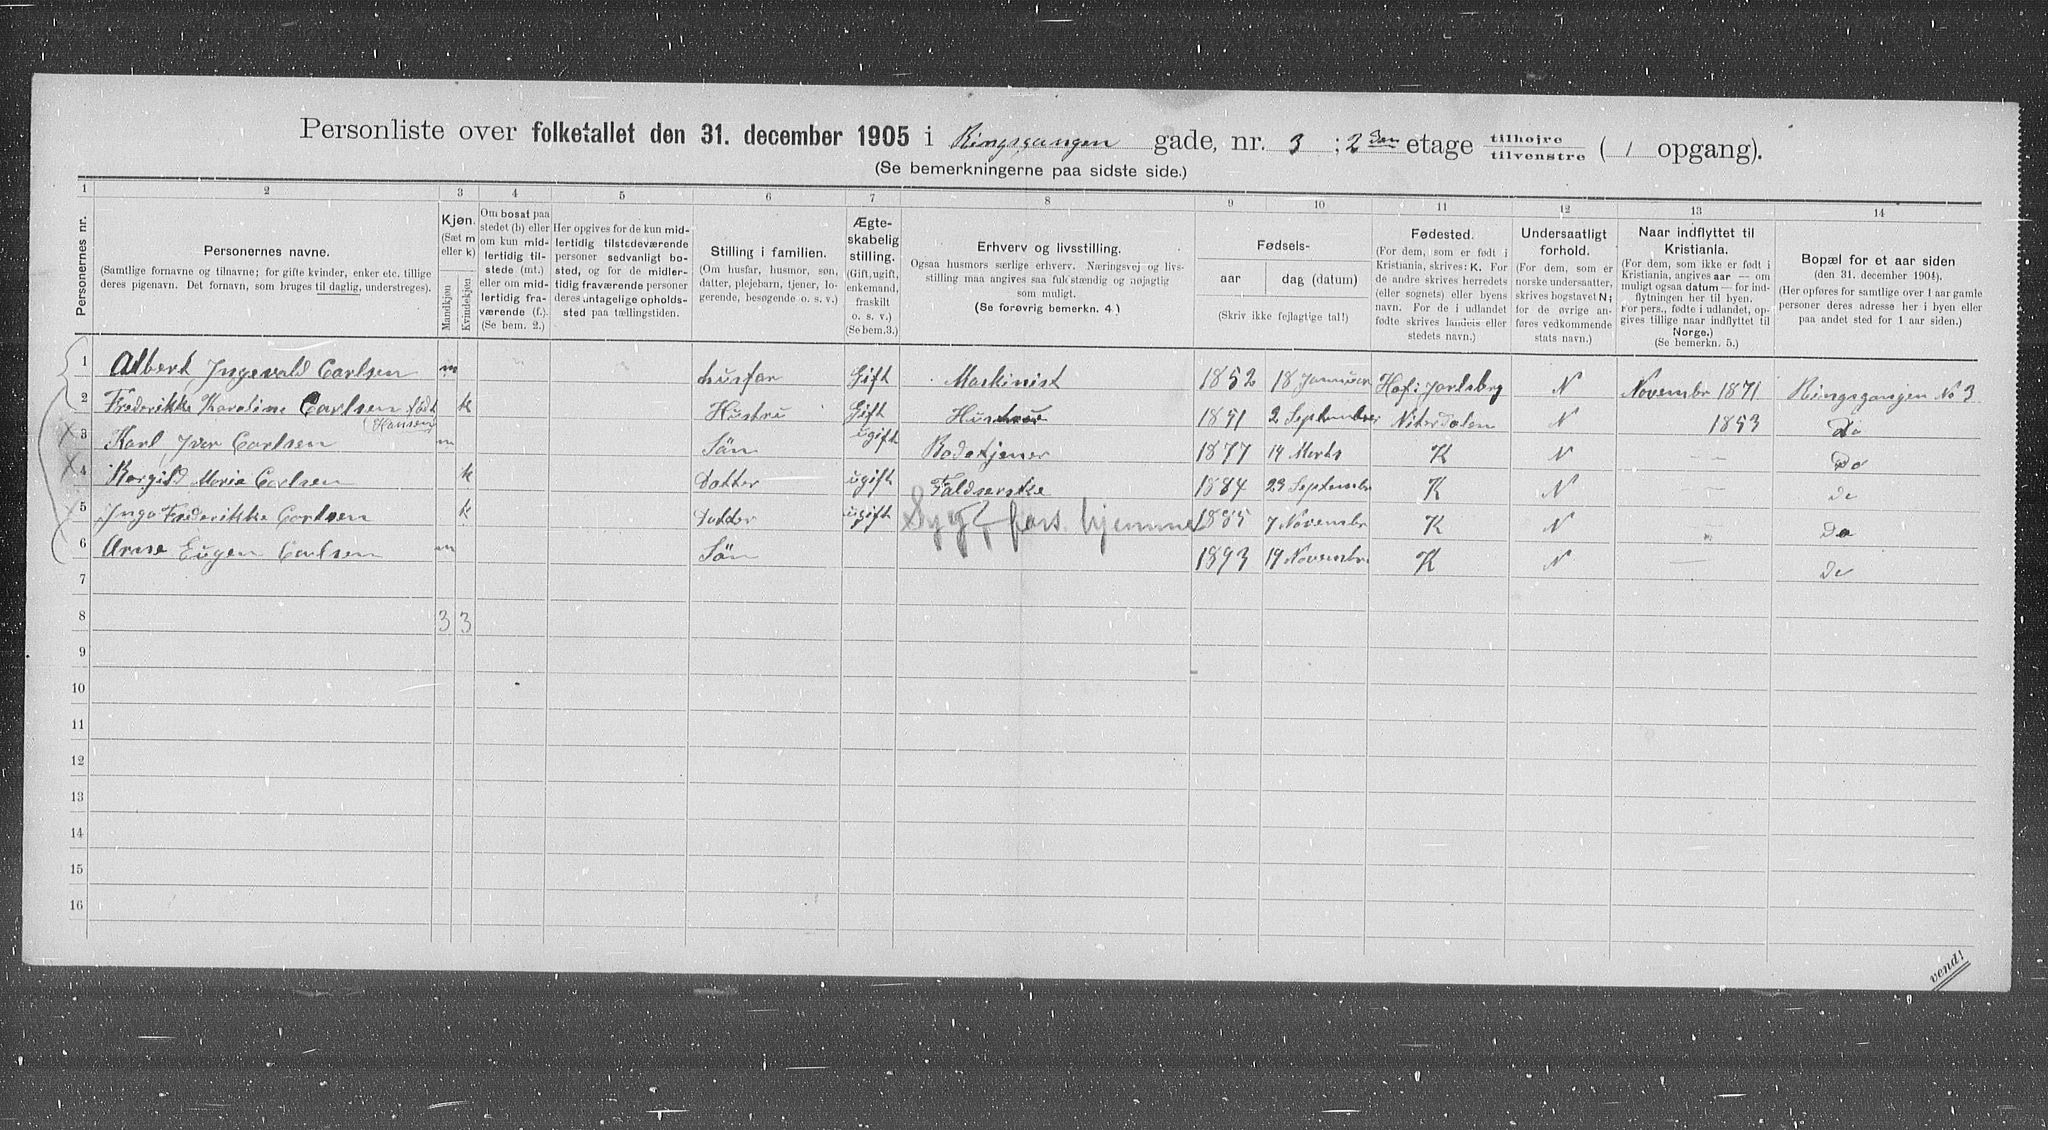 Personliste over folketallet den 31. december 1905 i Ringsgangen gade, nr. 3 ; 2den etage tilhøjre tilvenstre ( 1 opgang).
(Se bemerkningerne paa sidste side.)
1 2 3 4 5 6 7 8 9 10 11 12 13 14
Personernes nr.
Personernes navne.
(Samtlige fornavne og tilnavne; for gifte kvinder, enker etc. tillige
deres pigenavn. Det fornavn, som bruges til daglig, understreges).
Kjøn.
(Sæt m
eller k)
Mandkjøn
Kvindekjøn
Om bosat paa
stedet (b) eller
om kun mid-
lertidig til-
stede (mt.)
eller om mid-
lertidig fra-
værende (f.).
(Se bem. 2.)
Her opgives for de kun mid-
lertidig tilstedeværende
personer sedvanlig bo-
sted, og for de midler-
tidig fraværende personer
deres antagelige opholds-
sted paa tællingstiden.
Stilling i familien.
(Om husfar, husmor, søn,
datter, plejebarn, tjener, lo-
gerende, besøgende o. s. v.)
Ægte-
skabelig
stilling.
(Gift, ugift,
enkemand,
fraskilt
o. s. v.)
(Se bem.3.)
Erhverv og livsstilling.
Ogsaa husmors særlige erhverv. Næringsvej og livs-
stilling maa angives saa fuldstændig og nøjagtig
som muligt.
(Se forøvrig bemerkn. 4.)
Fødsels-
aar
dag (datum)
(Skriv ikke fejlagtige tal!)
Fødested.
(For dem, som er født i
Kristiania, skrives: K. For
de andre skrives herredets
(eller sognets) eller byens
navn. For de i udlandet
fødte skrives landets eller
stedets navn.)
Undersaatligt
forhold.
(For dem, som er
norske undersaatter,
skrives bogstavet N;
for de øvrige an-
føres vedkommende
stats navn.)
Naar indflyttet til
Kristiania.
(For dem, som ikke er født i
Kristiania, angives aar — om
muligt ogsaa datum — for ind-
flytningen her til byen.
For pers., fødte i udlandet, op-
gives tillige naar indflyttet til
Norge.)
(Se bemerkn. 5.)
Bopæl for et aar siden
(den 31. december 1904).
(Her opføres for samtlige over 1 aar gamle
personer deres adresse her i byen eller
paa andet sted for 1 aar siden.)
1 Albert Ingevald Carlsen m Husfar Gift Maskinist 1852 18 Januar Hof i Jarlsberg N Novembr 1871 Ringsgangen No 3
2 Frederikke Karoline Carlsen født k Hustru Gift Hustrue 1851 2 September Niterdalen N 1853 Do
(Hansen)
3 Karl Iver Carlsen m Sön ugift Badetjener 1877 14 Marts K N — Do
4 Borgild Marie Carlsen k Datter ugift Faldserske 1884 23 Septembr K N — do
5 Inga Frederikke Carlsen k Datter ugift Sygt, fors. hjemme 1885 7 Novembr K N — Do
6 Arne Eugen Carlsen m Sön 1893 19 Novembr K N — do
7
8 3 3
9
10
11
12
13
14
15
16
vend!